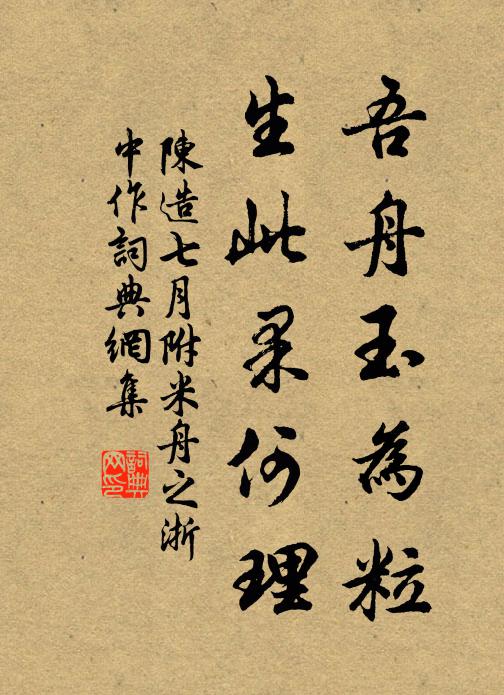 吾舟玉為粒
生此果何理
陳造七月附米舟之浙
中作詞典網集
詞典網印